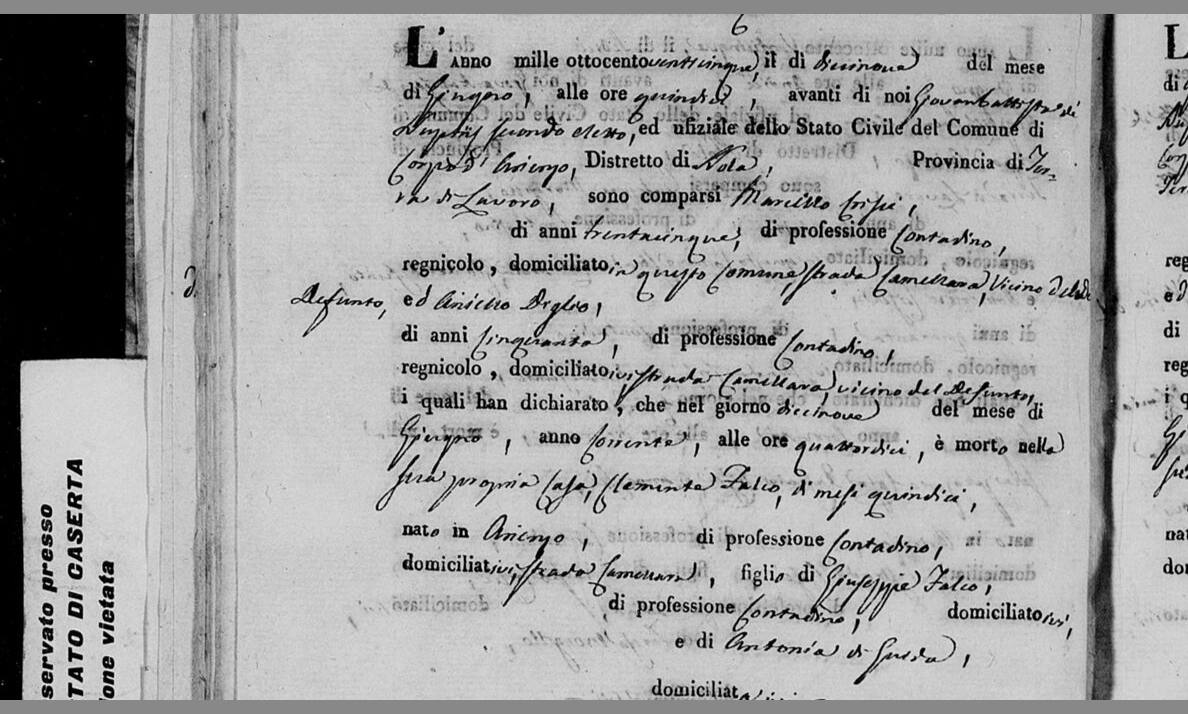 6
L'ANNO mille ottocentoventicinque, il di dicinove del mese
di Giugno, alle ore quindici, avanti di noi Giovanbattista di
secondo eletto, ed ufiziale dello Stato Civile del Comune di
Corpo d' Cicciano, Distretto di Nola, Provincia di Ter-
ra di Lavoro, sono comparsi Marcello Crisci,
di anni trentacinque, di professione Contadino,
regnicolo, domiciliato in questo Comune, strada Camellara, Vicino del De
Defunto, ed Aniello
di anni Cinquanta, di professione Contadino,
regnicolo, domiciliato ivi strada Camellara, vicino del Defunto,
i quali han dichiarato, che nel giorno dicinove del mese di
Giugno, anno Corrente, alle ore quattordici, è morto nella
sua propria Casa, Clemente Falco, di mesi quindici,
nato in, di professione Contadino,
domiciliat ivi, strada Camellara, figlio di Giuseppe Falco,
di professione Contadino, domiciliato ivi,
e di Antonia di Guida,
domiciliat
servato presso
TATO DI CASERTA
ione vietata